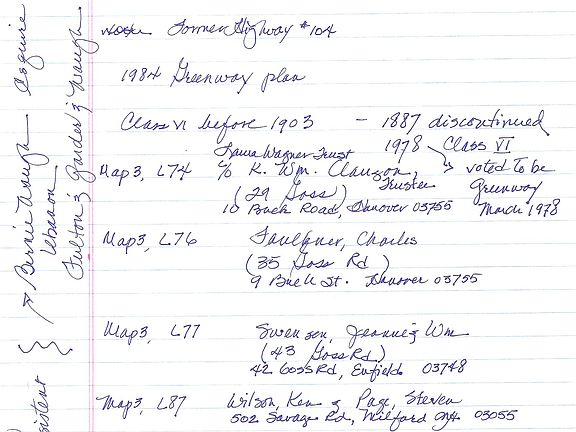 Former Highway #104
1984 Greenway plan
Class VI before 1903 - 1887 discontinued
1978 Class VI
Laura Wagner Trust
Map 3, L74 c/o K. Wm. Clauson, voted to be
(29 Goss) Trustee Greenway
10 Road, Hanover 03755 March 1978
Map 3, L76 Faulkner, Charles
(35 Goss Rd)
9 Buell St. Hanover 03755
Map 3, L77 Swensen, Jeanne & Wm
(43 Goss Rd)
42 Goss Rd, Enfield 03748
Map 3, L87 Wilson, Ken & Page, Steven
502 Savage Rd, Milford NH 03055
Bernie Waugh Esquire
Lebanon
Gardner & Waugh